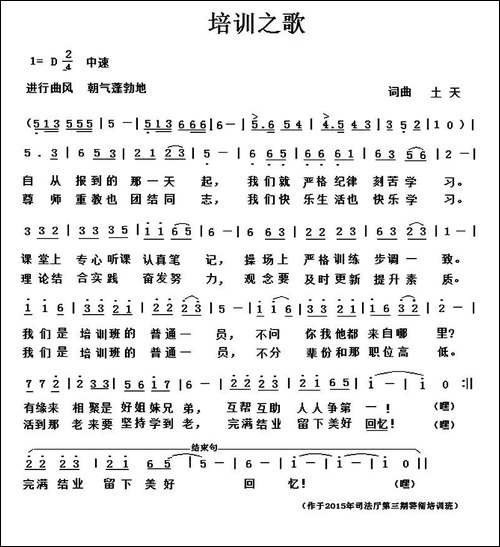 培训之歌
1= D 2/4 中速
进行曲风 朝气蓬勃地
词曲 土 天
(513 555 | 5 - | 513 666 | 6 - | 5.6 54 | 4.5 43 | 2 123 | 1 0) |
5. 3 | 6 53 | 21 23 | 5 - | 556 | 661 | 165 | 63 56 | 2 - |
自 从 报到的 那一天 起, 我们就 严格纪律 刻苦学 习。
尊 师 重教也 团结同 志, 我们快 乐生活也 快乐学 习。
332 | 335 | 1165 | 3 - | 223 | 665 | 6323 | 1 - |
课堂上 专心听课 认真笔 记, 操场上 严格训练 步调一 致。
理论结 合实践 奋发努 力, 观念要 及时更新 提升素 质。
我们是 培训班的 普通一 员, 不问 你我他都 来自哪 里?
我们是 培训班的 普通一 员, 不分 辈份和那 职位高 低。
有缘来 相聚是 好姐妹兄 弟, 互帮互助 人人争第 一! (嘿)
活到那 老来要 坚持学到 老, 完满结业 留下美好 回忆! (嘿)
结束句
22 23 | 21 65 | 5 - | 6 - | i - | i - | i 0 ‖
完满 结业 留下 美好 回 忆! (嘿)
(作于2015年司法厅第三期警衔培训班)